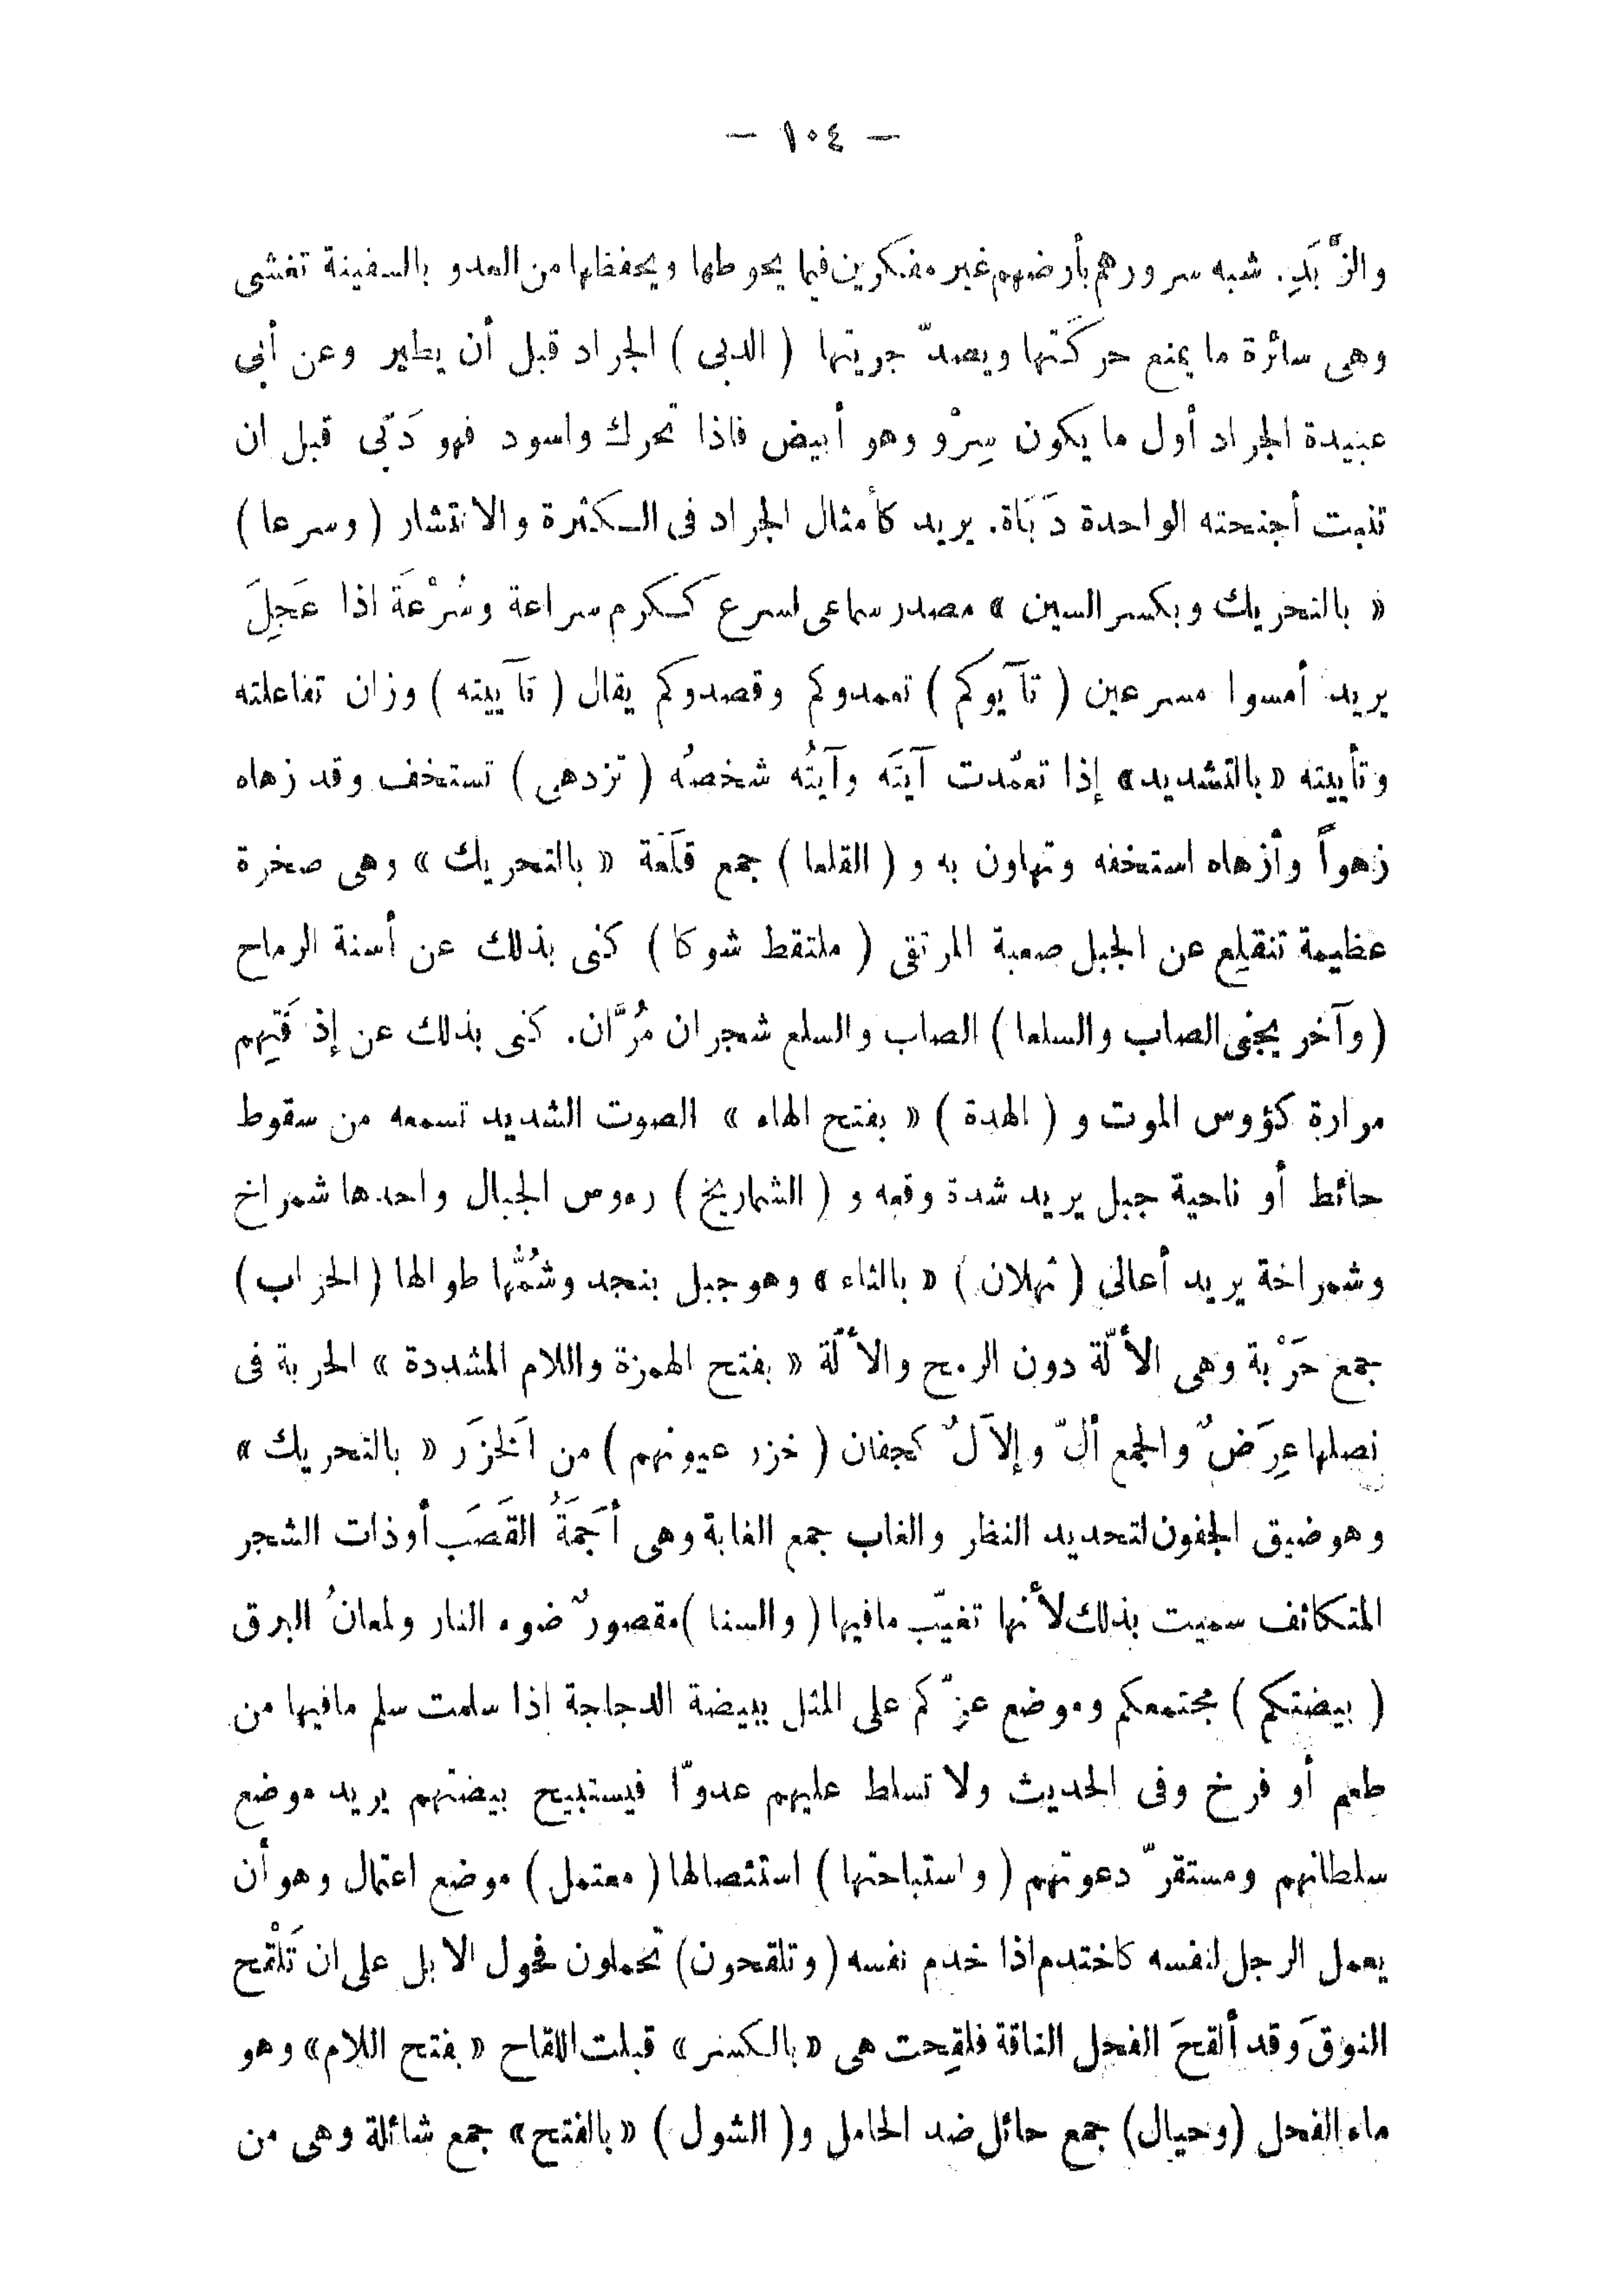 — ١٠٤ —
والزَّبَدِ. شبه سرورهم بأرضهم غير مفكرين فيما يحوطها ويحفظها من العدو بالسفينة تغشى
وهى سائرة ما يمنع حركَتها ويصدّ جريتها ( الدبى ) الجراد قبل أن يطير وعن أبى
عبيدة الجراد أول ما يكون سِرْو وهو أبيض فاذا تحرك واسود فهو دَبًى قبل ان
تنبت أجنحته الواحدة دَبَاة. يريد كأمثال الجراد فى الكثرة والانتشار ( وسرعا )
« بالتحريك وبكسر السين » مصدر سماعى لسرع ككرم سراعة وسُرْعَة اذا عَجِلَ
يريد أمسوا مسرعين ( تآيوكم ) تعمدوكم وقصدوكم يقال ( تآييته ) وزان تفاعلته
وتأييته « بالتشديد » إذا تعمّدت آيتَه وآيتُه شخصُه ( تزدهى ) تستخف وقد زهاه
زهواً وأزهاه استخفه وتهاون به و ( القلعا ) جمع قلَعَة « بالتحريك » وهى صخرة
عظيمة تنقلِع عن الجبل صعبة المرتقى ( ملتقط شوكا ) كنى بذلك عن أسنة الرماح
( وآخر يجنى الصاب والسلعا ) الصاب والسلع شجران مُرَّان. كنى بذلك عن إذقَتِهِم
مرارة كؤوس الموت و ( الهدة ) « بفتح الهاء » الصوت الشديد تسمعه من سقوط
حائط أو ناحية جبل يريد شدة وقعه و ( الشماريخ ) رءوس الجبال واحدها شمراخ
وشمراخة يريد أعالى ( ثهلان ) « بالثاء » وهو جبل بنجد وشُمُّها طوالها ( الحراب )
جمع حَرْبة وهى الألّة دون الرمح والألّة « بفتح الهمزة واللام المشددة » الحربة فى
نصلها عِرَضٌ والجمع ألّ وإلاَلٌ كجفان ( خزر عيونهم ) من الَخزَر « بالتحريك »
وهو ضيق الجفون لتحديد النظر والغاب جمع الغابة وهى أَجَمَةُ القَصَب أو ذات الشجر
المتكاثف سميت بذلك لأنها تغيّب مافيها ( والسنا ) مقصورٌ ضوء النار ولمعانُ البرق
( بيضتكم ) مجتمعكم وموضع عزّكم على المثل ببيضة الدجاجة اذا سلمت سلم مافيها من
طعم أو فرخ وفى الحديث ولا تسلط عليهم عدوّا فيستبيح بيضتهم يريد موضع
سلطانهم ومستقرّ دعوتهم ( واستباحتها ) استئصالها ( معتمل ) موضع اعتمال وهو أن
يعمل الرجل لنفسه كاختدم اذا خدم نفسه ( وتلقحون ) تحملون فحول الابل على ان تَلْقَح
النوقَ وقد ألقحَ الفحل الناقة فلقِحت هى « بالكسر » قبلت اللقاح « بفتح اللام » وهو
ماء الفحل ( وحيال ) جمع حائل ضد الحامل و( الشول ) « بالفتح » جمع شائلة وهى من